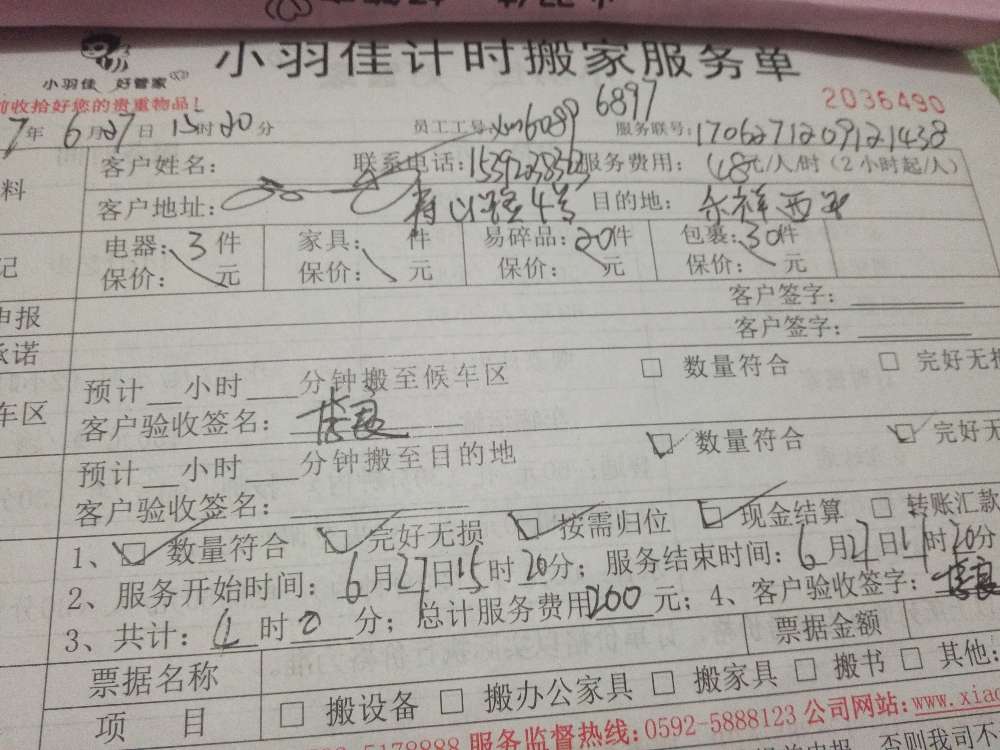 小羽佳计时搬家服务单
小羽佳 好管家
前收拾好您的贵重物品！
2036490
6897
7年6月27日15时20分 员工工号:xm6089 服务联号:1706271209121438
料 客户姓名: 联系电话: 服务费用: 48元/人/时（2小时起/人）
客户地址: 4号 目的地:
记 电器:3件 家具: 件 易碎品:20件 包裹:30件
保价: 元 保价: 元 保价: 元 保价: 元
申报 客户签字:
承诺 客户签字:
车区 预计 小时 分钟搬至候车区 □ 数量符合 □ 完好无损
客户验收签名:
预计 小时 分钟搬至目的地 ☑ 数量符合 ☑ 完好无
客户验收签名:
1、☑ 数量符合 ☑ 完好无损 ☑ 按需归位 ☑ 现金结算 □ 转账汇款
2、服务开始时间: 6月27日15时20分; 服务结束时间: 6月27日 时20分
3、共计: 时0分; 总计服务费用200元; 4、客户验收签字:
票据名称 票据金额
项 目 □ 搬设备 □ 搬办公家具 □ 搬家具 □ 搬书 □ 其他:
5178888 服务监督热线: 0592-5888123 公司网站: www.xiao